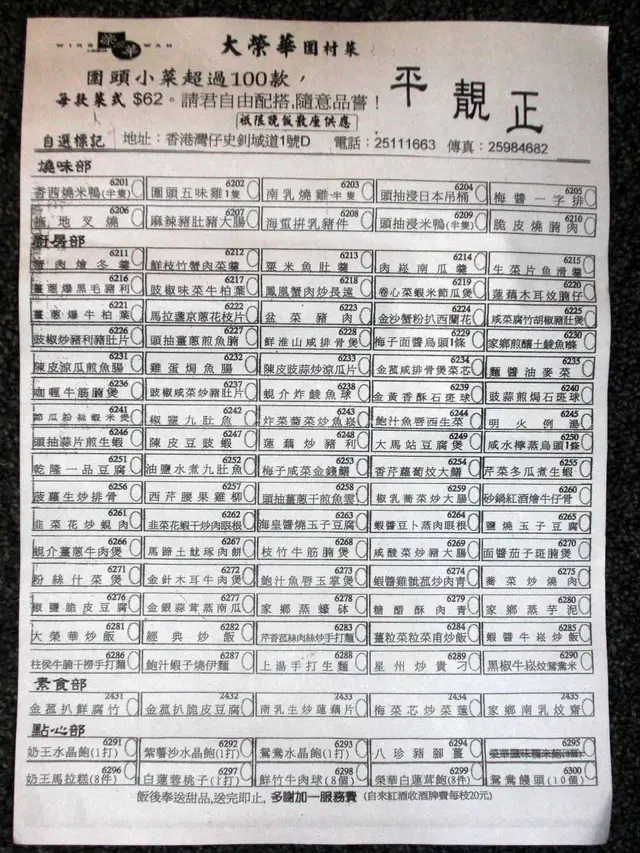 WING WAH 大榮華圍村菜
圍頭小菜超過100款，
每款菜式 $62。請君自由配搭，隨意品嘗！
平靚正
祇限晚飯散座供應
自選標記 地址：香港灣仔史釗域道1號D 電話：25111663 傳真：25984682
燒味部
6201 6202 6203 6204 6205
香茜燒米鴨(半隻) 圍頭五味雞1隻 南乳燒雞半隻 頭抽浸日本吊桶 梅醬一字排
6206 6207 6208 6209 6210
地叉燒 麻辣豬肚豬大腸 海蜇拼乳豬件 頭抽浸米鴨(半隻) 脆皮燒腩肉
廚房部
6211 6212 6213 6214 6215
蟹肉燴冬羹 鮮枝竹蟹肉羹 粟米魚肚羹 肉崧南瓜羹 生菜片魚滑羹
6216 6217 6218 6219 6220
薑蔥爆黑毛豬利 豉椒味菜牛柏葉 鳳凰蟹肉炒長遠 卷心菜蝦米節瓜煲 蓮藕木耳炆腩仔
6221 6222 6223 6224 6225
薑蔥爆牛柏葉 馬拉盞京蔥花枝片 盆菜豬肉 金沙蟹粉扒西蘭花 咸菜腐竹胡椒豬肚煲
6226 6227 6228 6229 6230
豉椒炒豬利豬肚片 頭抽薑蔥煎魚腩 鮮淮山咸排骨煲 梅子面醬烏頭1條 家鄉煎釀土鯪魚1條
6231 6232 6233 6234 6235
陳皮涼瓜煎魚腸 雞蛋焗魚腸 陳皮豉蒜炒涼瓜片 金菰咸排骨煲菜芯 麵醬油麥菜
6236 6237 6238 6239 6240
咖喱牛筋腩煲 豉椒咸菜炒豬肚片 蜆介炸鯪魚球 金黃香酥石斑球 豉蒜煎焗石斑球
6241 6242 6243 6244 6245
節瓜粉絲蝦米煲 椒鹽九肚魚 炸菜蕎菜炒魚 鮑汁魚唇西生菜 明火例湯
6246 6247 6248 6249 6250
頭抽蒜片煎生蝦 陳皮豆豉蝦 蓮藕炒豬利 大馬站豆腐煲 咸水檸蒸烏頭1條
6251 6252 6253 6254 6255
乾隆一品豆腐 油鹽水煮九肚魚 梅子咸菜金錢鱔 香芹蘿蔔炆大鱔 芹菜冬瓜煮生蝦
6256 6257 6258 6259 6260
菠蘿生炒排骨 西芹腰果雞柳 頭抽薑蔥干煎魚雲 椒乳蕎菜炒大腸 砂鍋紅酒燴牛仔骨
6261 6262 6263 6264 6265
韭菜花炒蜆肉 韭菜花蝦干炒肉眼根 海皇醬燒玉子豆腐 蝦醬豆卜蒸肉眼根 鹽燒玉子豆腐
6266 6267 6268 6269 6270
蜆介薑蔥牛肉煲 馬蹄土魷琢肉餅 枝竹牛筋腩煲 咸酸菜炒豬大腸 面醬茄子斑腩煲
6271 6272 6273 6274 6275
粉絲什菜煲 金針木耳牛肉煲 鮑汁魚唇玉掌煲 蝦醬雞髀菰炒肉青 蕎菜炒燒肉
6276 6277 6278 6279 6280
椒鹽脆皮豆腐 金銀蒜茸蒸南瓜 家鄉蒸蠔砵 糖醋酥肉青 家鄉蒸芋泥
6281 6282 6283 6284 6285
大榮華炒飯 經典炒飯 芹香菰絲肉絲炒手打麵 薑粒菜粒菜甫炒飯 蝦醬牛崧炒飯
6286 6287 6288 6289 6290
柱侯牛腩干撈手打麵 鮑汁蝦子燒伊麵 上湯手打生麵 星州炒貴刁 黑椒牛崧炆鴛鴦米
素食部
2431 2432 2433 2434 2435
金菰扒鮮腐竹 金菰扒脆皮豆腐 南乳生炒蓮藕片 梅菜芯炒菜薳 家鄉南乳炆齋
點心部
6291 6292 6293 6294 6295
奶王水晶飽(1打) 紫薯沙水晶飽(1打) 鴛鴦水晶飽(1打) 八珍豬腳薑
6296 6297 6298 6299 6300
奶王馬拉糕(8件) 白蓮蓉桃子(1打) 鮮竹牛肉球(8個) 榮華白蓮茸飽(8件) 鴛鴦饅頭(10個)
飯後奉送甜品,送完即止, 多謝加一服務費 (自來紅酒收酒牌費每枝20元)